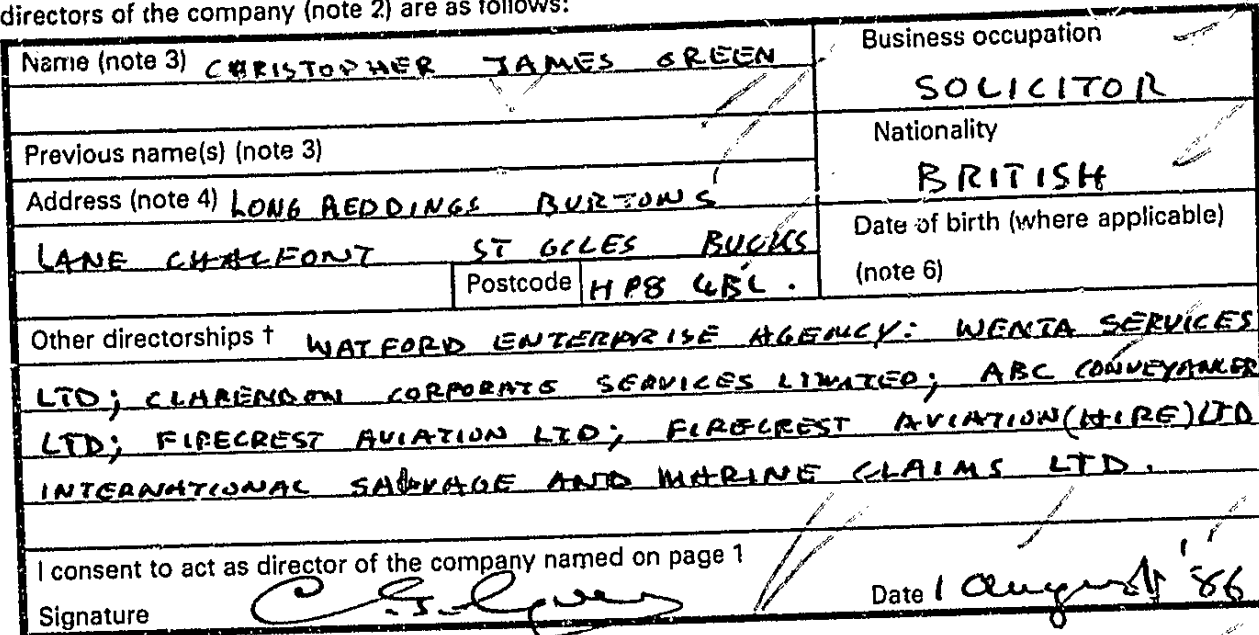 directors of the company (note 2) are as follows:
Name (note 3) CHRISTOPHER JAMES GREEN
Business occupation
SOLICITOR
Previous name(s) (note 3)
Nationality
BRITISH
Address (note 4) LONG REDDINGS BURTONS
LANE CHALFONT ST GILES BUCKS
Postcode HP8 4BL.
Date of birth (where applicable)
(note 6)
Other directorships † WATFORD ENTERPRISE AGENCY: WENTA SERVICES
LTD; CLARENDON CORPORATE SERVICES LIMITED; ABC CONVEYANCER
LTD; FIRECREST AVIATION LTD; FIRECREST AVIATION (HIRE) LTD
INTERNATIONAL SALVAGE AND MARINE CLAIMS LTD.
I consent to act as director of the company named on page 1
Signature
Date 1 August '86